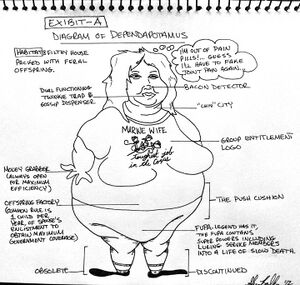 EXIBIT-A
DIAGRAM OF DEPENDAPOTAMUS
HABITAT: FILTHY HOUSE
PACKED WITH FERAL
OFFSPRING.
I'M OUT OF PAIN
PILLS!... GUESS
I'LL HAVE TO FAKE
JOINT PAIN AGAIN...
DUAL FUNCTIONING
TWINKIE TRAP &
GOSSIP DISPENSER
BACON DETECTOR
"CHIN" CITY
MARINE WIFE
toughest job
in the Corps
GROUP ENTITLEMENT
LOGO
MONEY GRABBER
(ALWAYS OPEN
FOR MAXIMUM
EFFICIENCY)
OFFSPRING FACTORY
(COMMON RULE IS
1 CHILD PER
YEAR OF SPOUSE'S
ENLISTMENT TO
OBTAIN MAXIMUM
GOVERNMENT COVERAGE)
THE PUSH CUSHION
FUPA: LEGEND HAS IT,
THE FUPA CONTAINS
SUPER POWERS INCLUDING
LURING SERVICE MEMBERS
INTO A LIFE OF SLOW DEATH.
OBSOLETE
DISCONTINUED